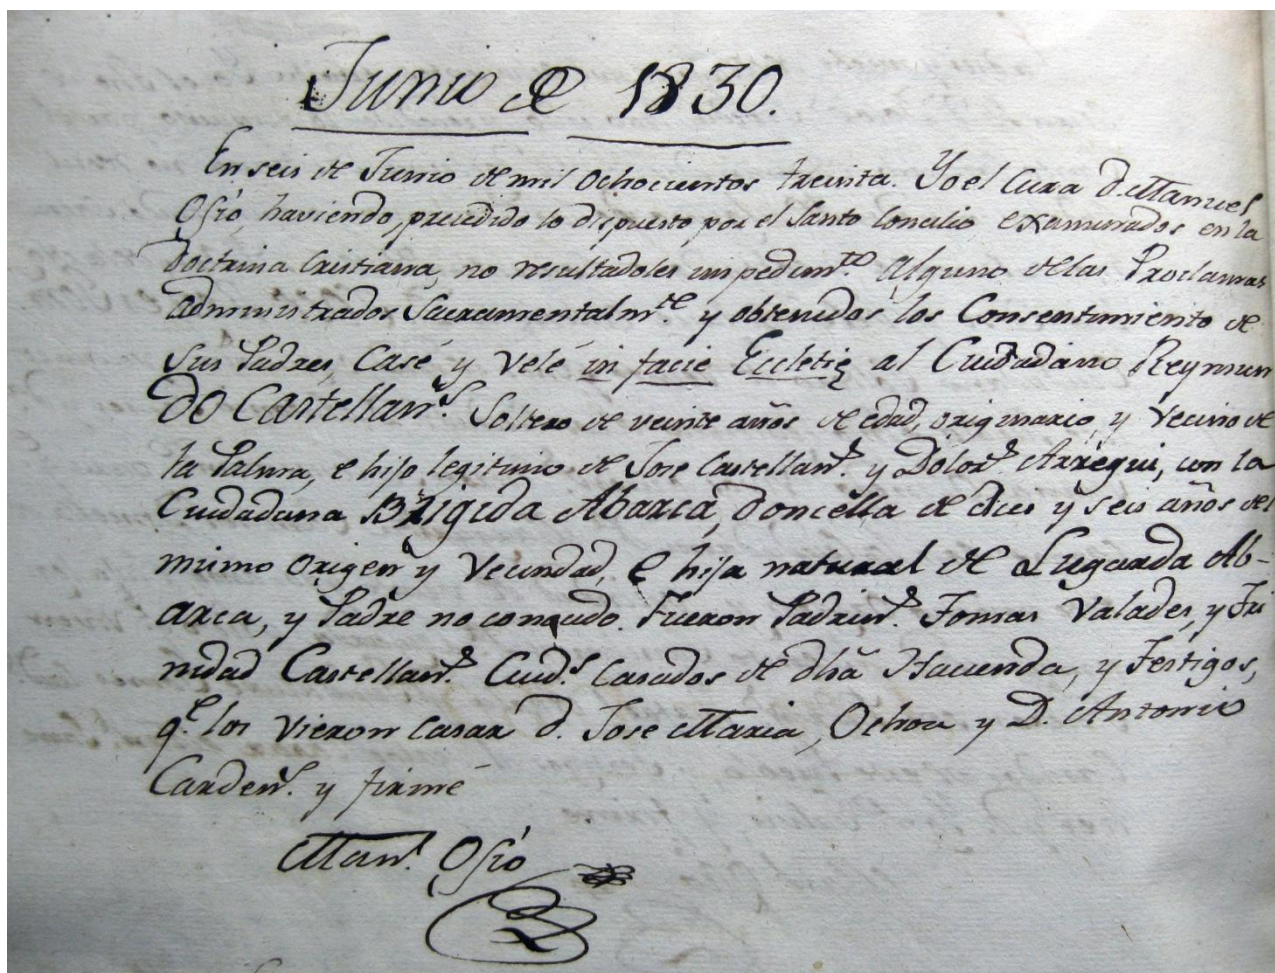 Junio de 1830.
En seis de Junio de mil ochocientos treinta. Yo el Cura D. Manuel
Osio, haviendo, precedido lo dispuesto por el Santo Concilio examinados en la
Doctrina Cristiana, no resultadoles impedimto. alguno de las Proclamas
administrados Sacramentalmte. y obtenidos los Consentimiento de
sus Padres, Casé y Velé in facie Ecclesię al Ciudadano Reymun
do Castellans. Soltero de veinte años de edad, originario, y Vecino de
la Palma, e hijo legitimo de Jose Castellans. y Dolors. Arregui, con la
Ciudadana Brigida Abarca, Doncella de dies y seis años del
mismo origen y Vecindad, e hija natural de Lugarda Ab-
arca, y Padre no conocido. Fueron Padrins. Tomas Valades, y Tri
nidad Castellans. Ciuds. Casados de dha Hacienda, y Testigos,
qe. los vieron casar D. Jose Maria, Ochoa y D. Antonio
Cardens. y firmé
Manl. Osio